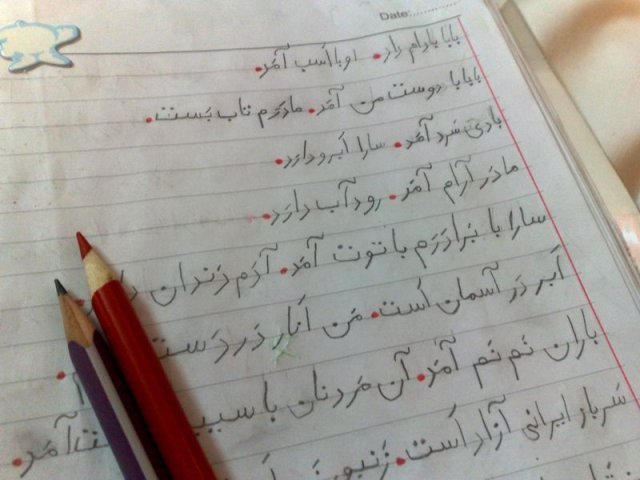 Date:
بابا بادام دارد. او با اسب آمَد.
با بابا دوست من آمَد. مادَرَم تاب بَست.
بادی سَرد آمَد. سارا اَبرو دارَد.
مادَر آرام آمَد. رود آب دارَد.
سارا با بَرادَرَم با توت آمَد. آدَم دَندان
اَبر دَر آسمان اَست. مَن اَنار دَر دَست
باران نَم نَم آمَد. آن مَرد نان با سبد آمَد.
سَرباز ایرانی آزاد اَست. زَنبور